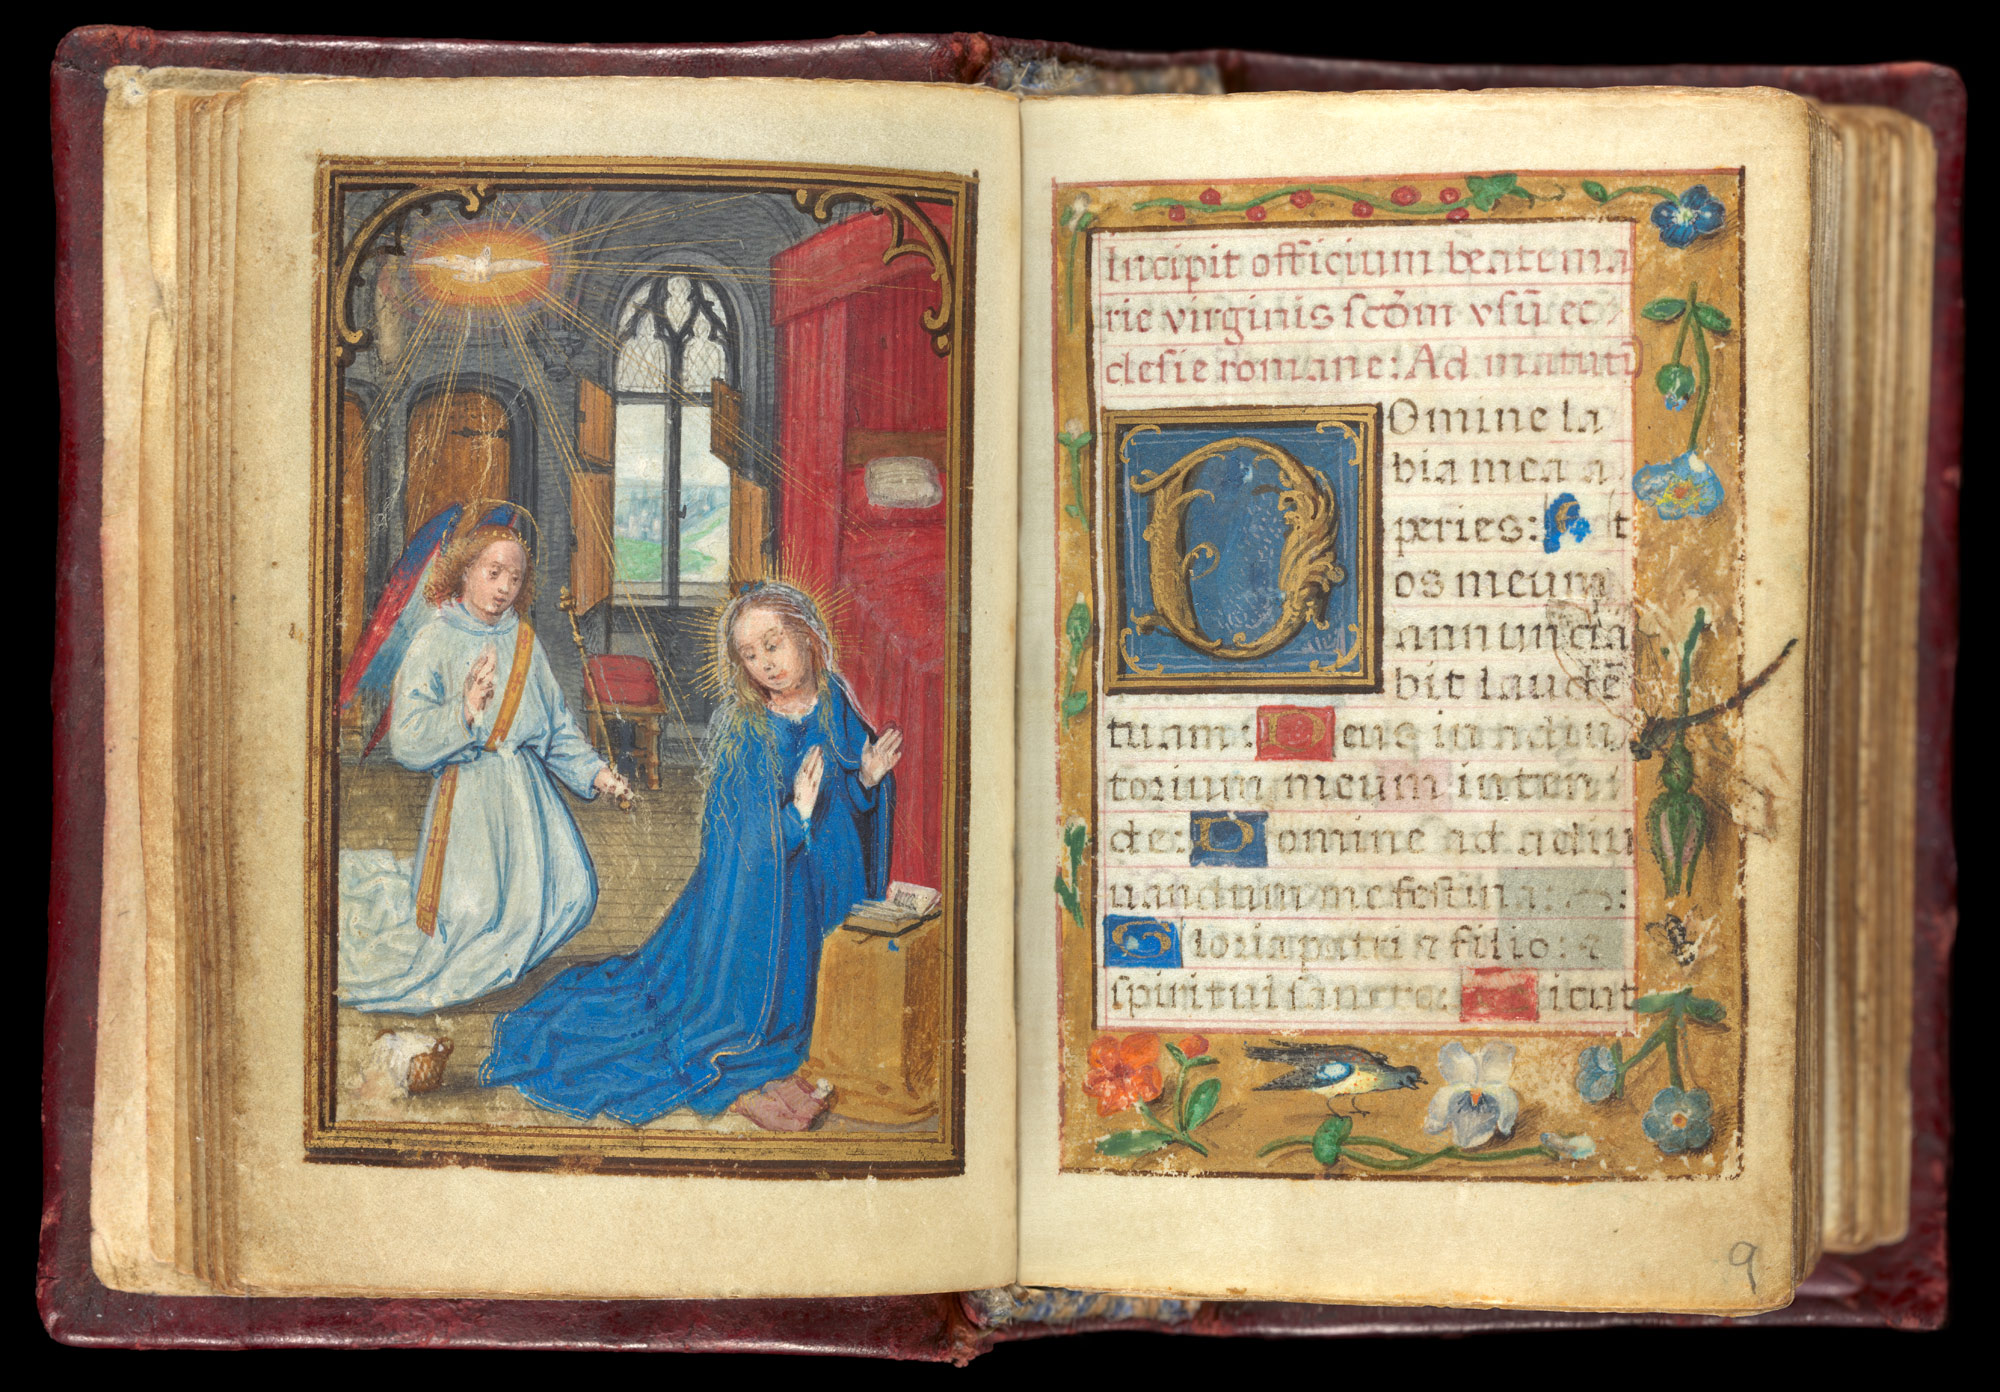 Incipit officium beate ma
rie virginis scd̄m vsū ec
clesie romane: Ad matuti̅
Domine la
bia mea a
peries: Et
os meum
annuncia
bit laudē
tuam: Deus in adiu
torium meum inten
de: Domine ad adiu
uandum me festina:
Gloria patri & filio: &
spiritui sancto: Sicut
9